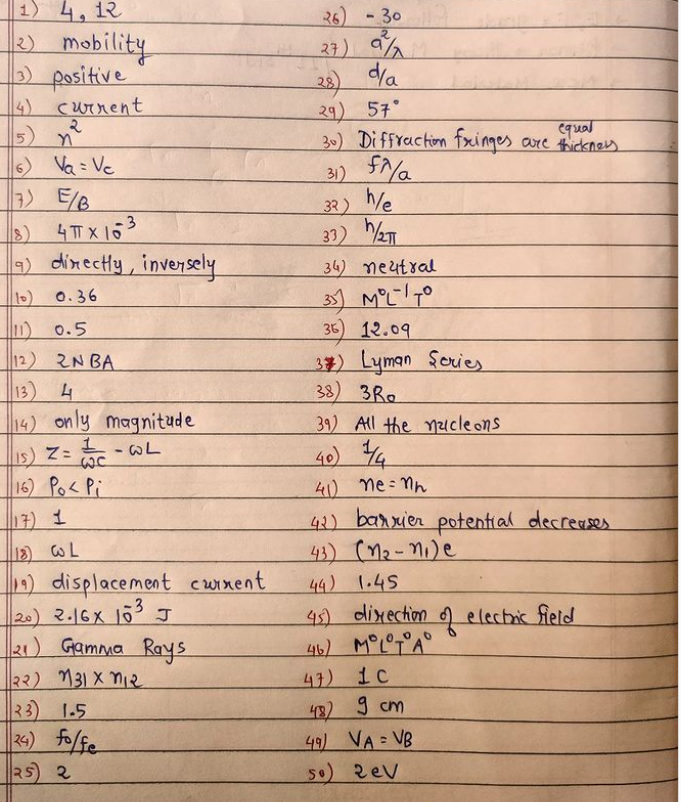 1) 4, 12
2) mobility
3) positive
4) current
5) n²
6) Va = Vc
7) E/B
8) 4π × 10⁻³
9) directly, inversely
10) 0.36
11) 0.5
12) 2NBA
13) 4
14) only magnitude
15) Z = 1/ωC - ωL
16) Po < Pi
17) 1
18) ωL
19) displacement current
20) 2.16 × 10⁻³ J
21) Gamma Rays
22) n31 × n12
23) 1.5
24) fo/fe
25) 2
26) -30
27) a²/λ
28) d/a
29) 57°
30) Diffraction fringes are equal thickness
31) fλ/a
32) h/e
33) h/2π
34) neutral
35) M⁰L⁻¹T⁰
36) 12.09
37) Lyman Series
38) 3Ro
39) All the nucleons
40) 1/4
41) ne = nh
42) barrier potential decreases
43) (n2 - n1)e
44) 1.45
45) direction of electric field
46) M⁰L⁰T⁰A⁰
47) 1 C
48) 9 cm
49) VA = VB
50) 2eV